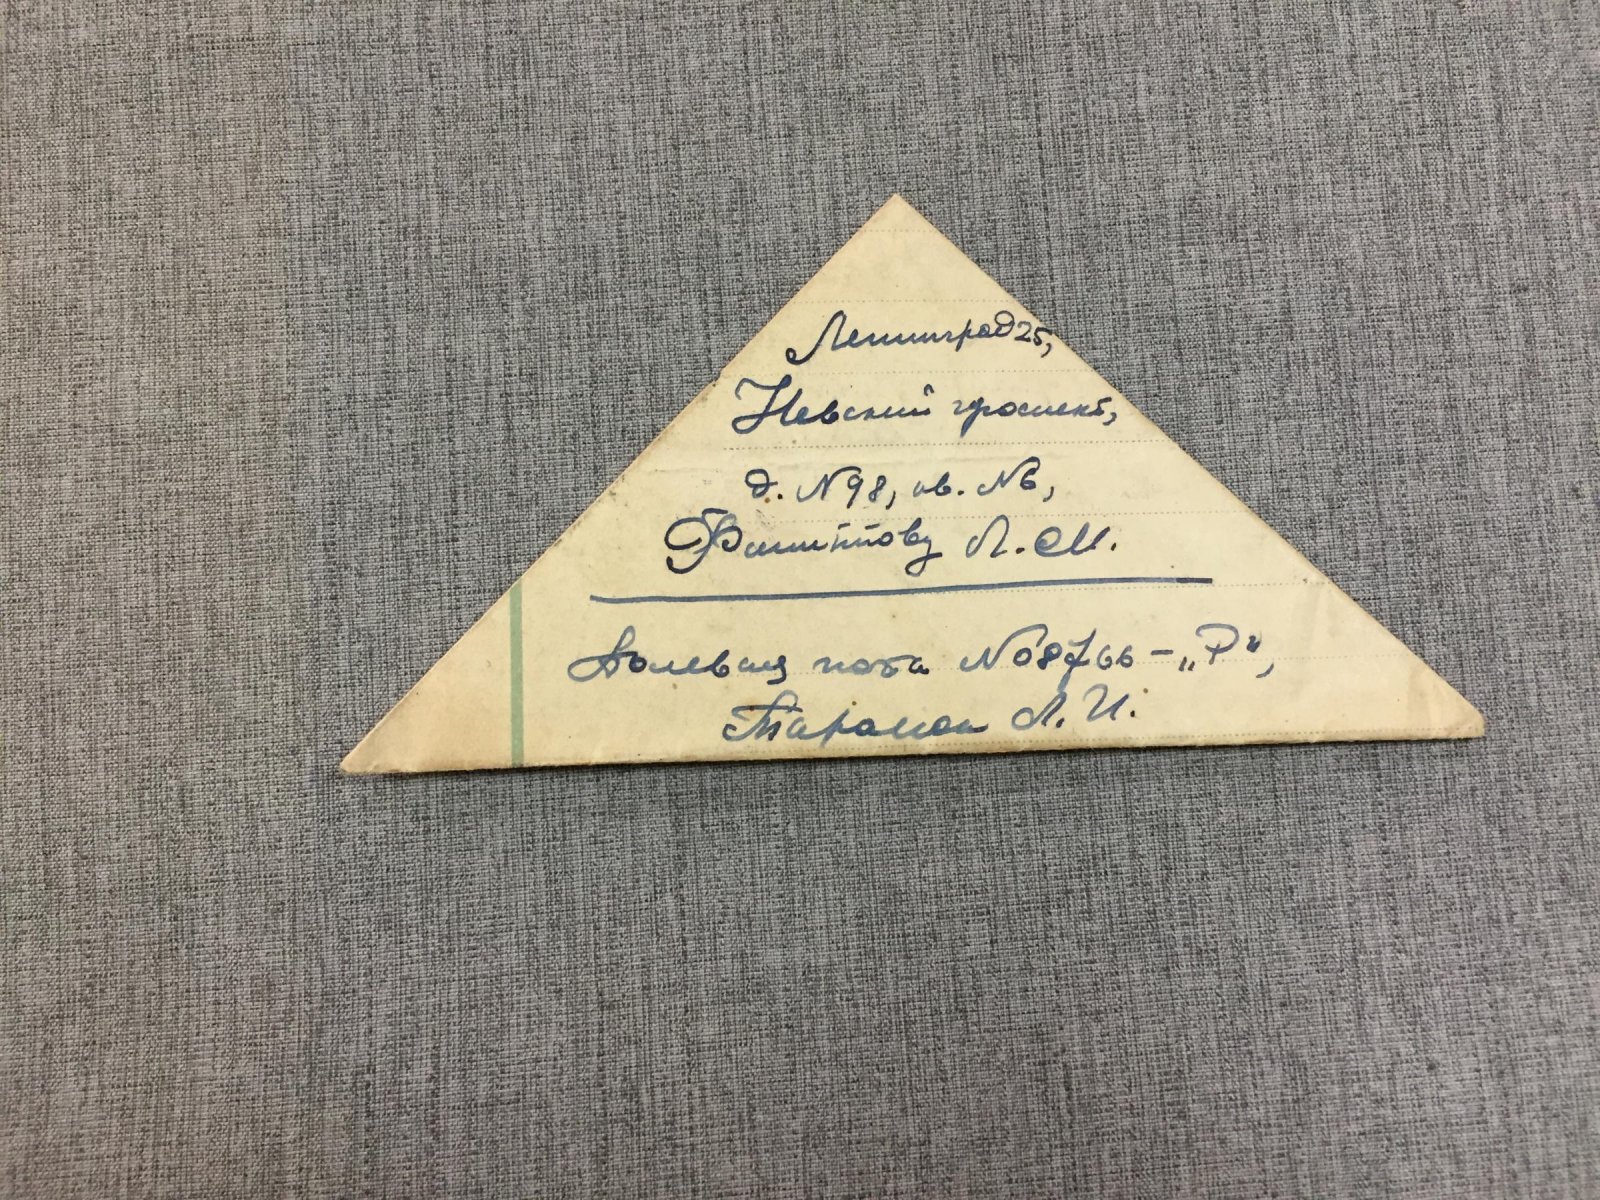 Ленинград 25,
Невский проспект,
д. № 98, кв. №6,
Л. М.
Полевая почта №08766 – „Р",
Л. И.